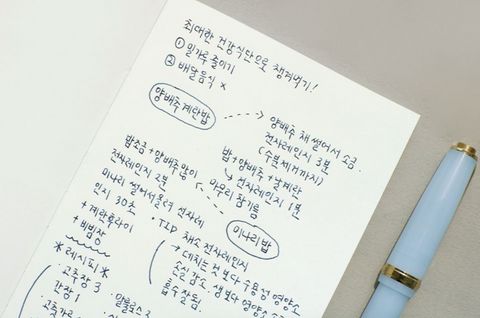 최대한 건강식단으로 챙겨먹기!
① 밀가루 줄이기
② 배달음식 x
양배추계란밥
양배추 채썰어서 소금.
전자레인지 3분
(수분제거까지)
밥 + 양배추 + 날계란
↳ 전자레인지 1분
마무리 참기름
밥소금 + 양배추많이
전자레인지 2분
미나리 썰어서올려 전자레
인지 30초
+ 계란후라이
+ 비빔장
미나리밥
*레시피*
고추장 3
간장 1
· 고춧가루
· 알룰로스
· TIP 채소 전자레인지
→ 데치는 것 보다 수용성 영양소
손실감소. 생보다 영양소
흡수 잘됨.